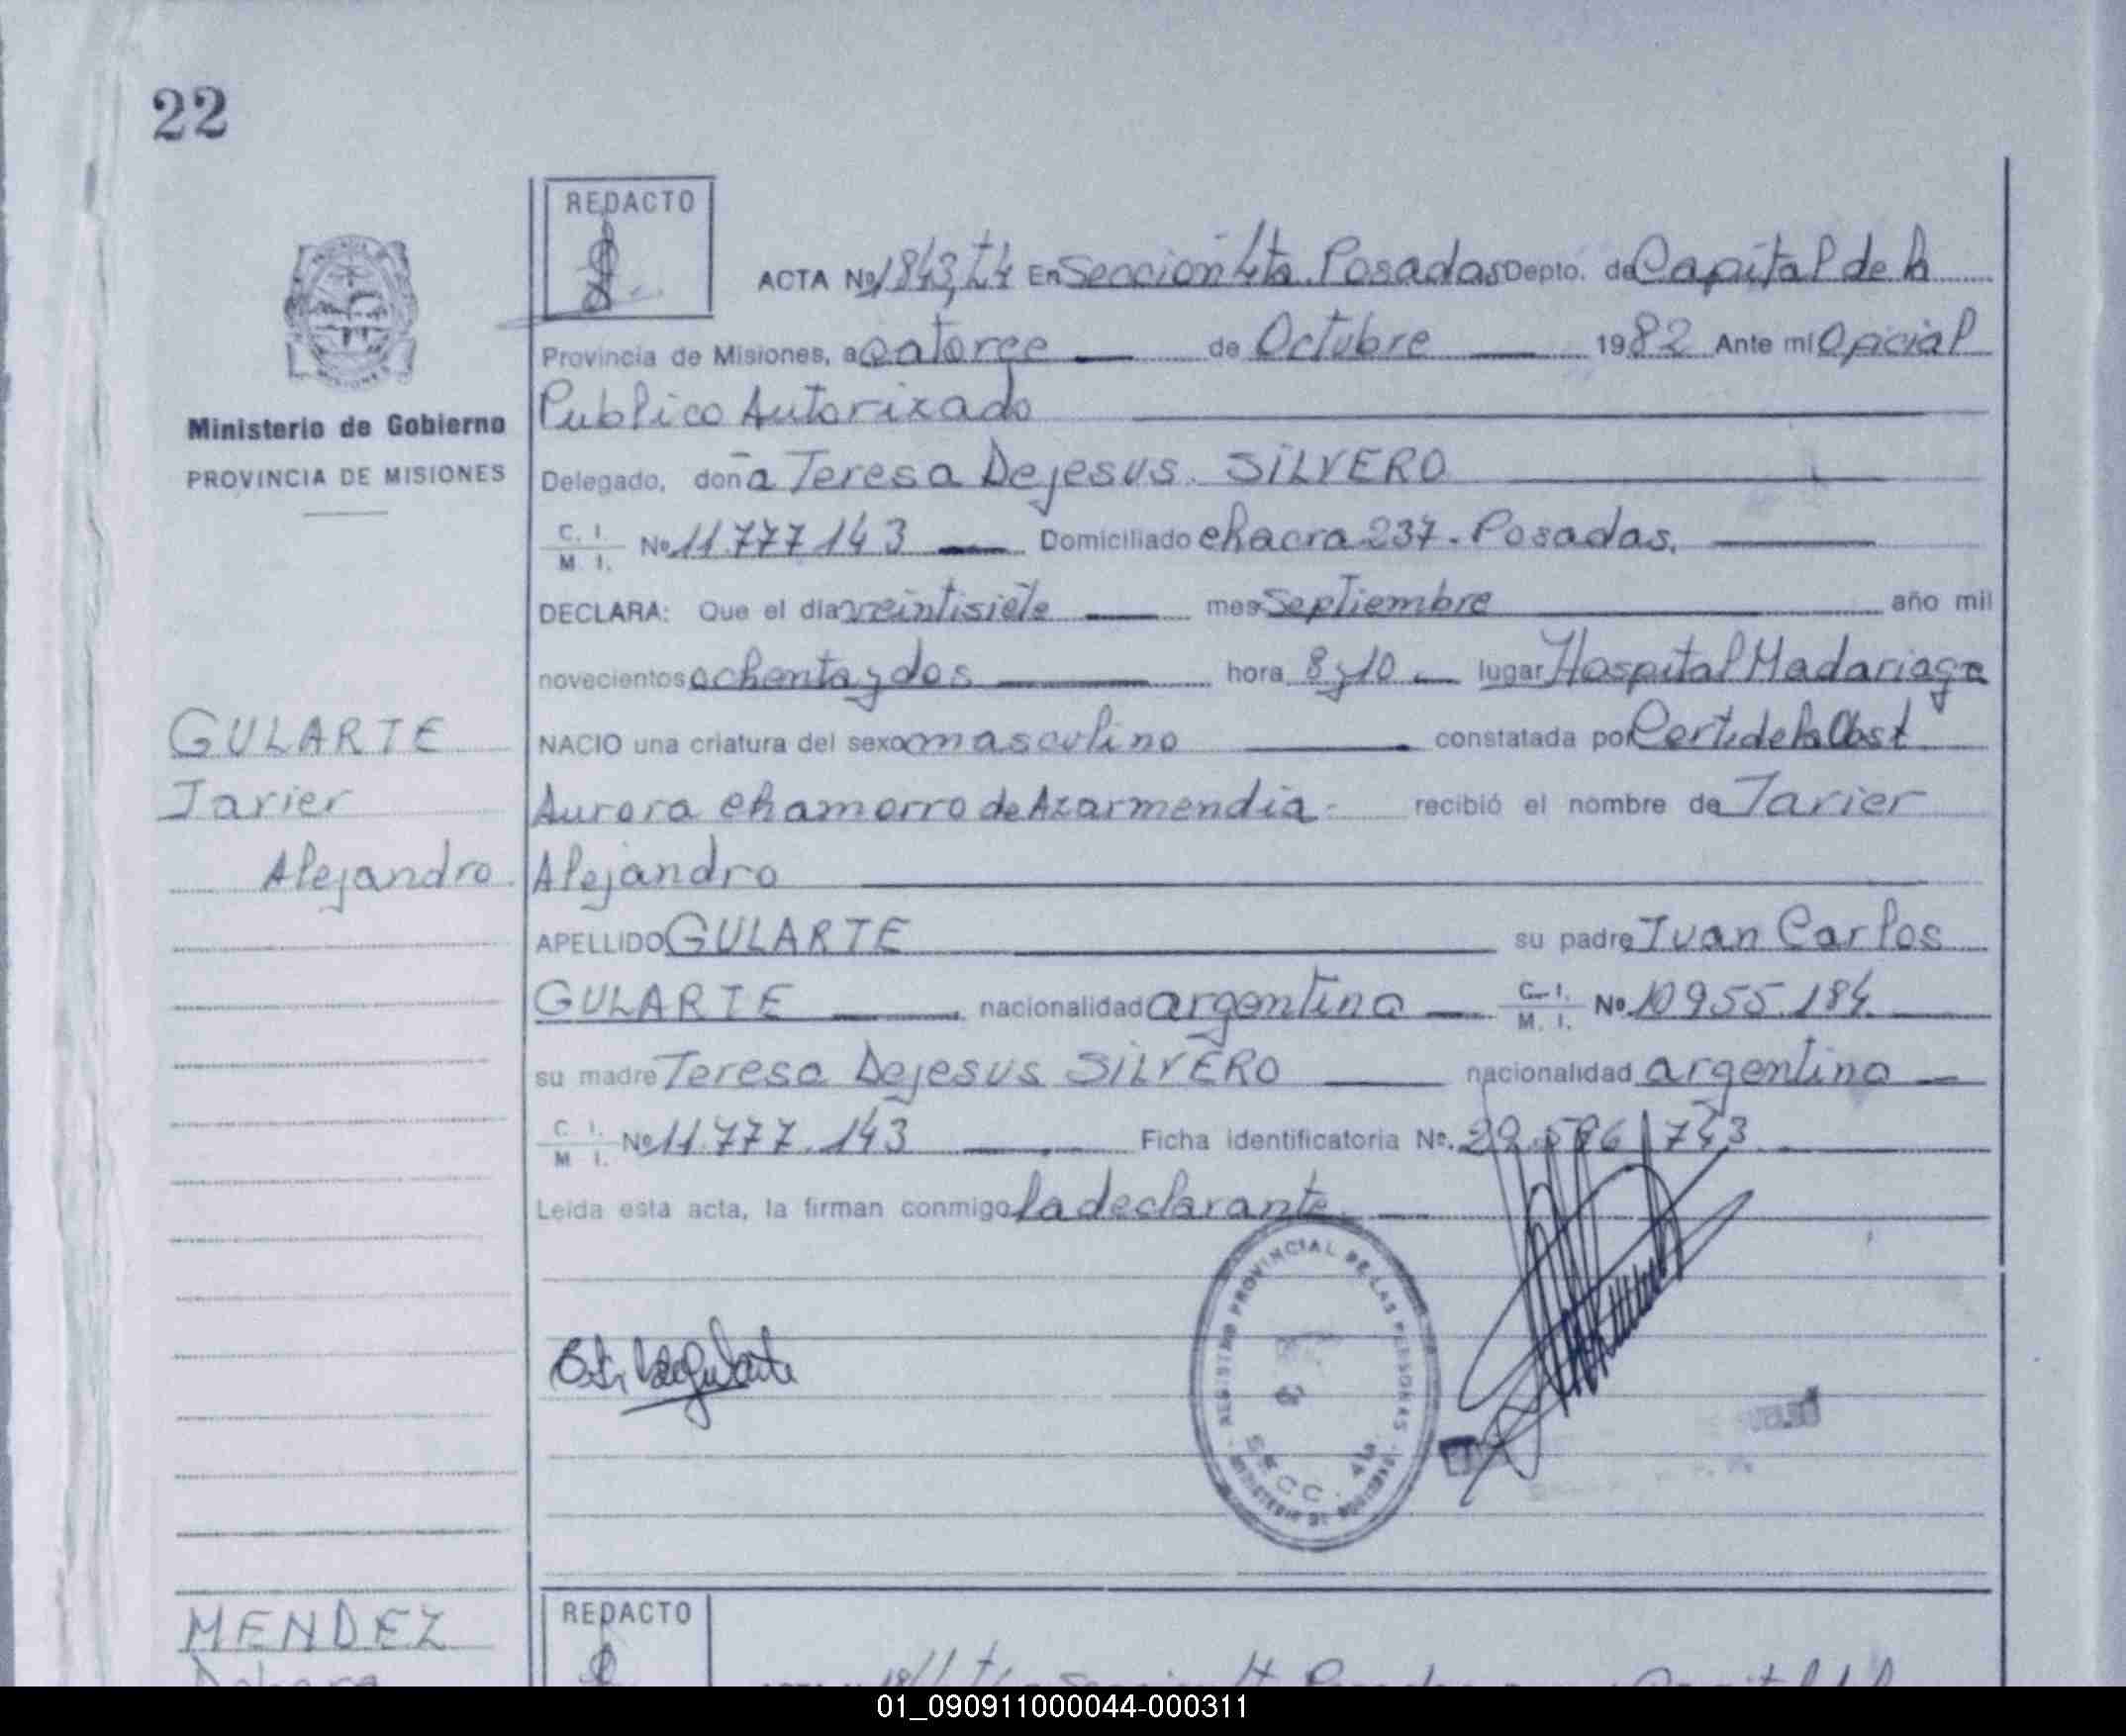 22
REDACTO
ACTA Nº 1843, t4 En Seccion 4ta. Posadas Depto. de Capital de la
Provincia de Misiones, a catorce de Octubre 1982 Ante mí Oficial
Publico Autorizado
Ministerio de Gobierno
PROVINCIA DE MISIONES
Delegado, doña Teresa Dejesus. SILVERO
C. I. M. I. Nº 11.777143 Domiciliado chacra 237. Posadas.
DECLARA: Que el día veintisiete mes Septiembre año mil
novecientos ochenta y dos hora 8 y 10 lugar Hospital Madariaga
NACIO una criatura del sexo masculino constatada por Cert. de la Obst
Aurora Chamorro de Azarmendia. recibió el nombre de Javier
Alejandro
GULARTE
Javier
Alejandro.
APELLIDO GULARTE su padre Juan Carlos
GULARTE nacionalidad argentina C. I. M. I. Nº 10955.184.
su madre Teresa Dejesus SILVERO nacionalidad argentina
C. I. M. I. Nº 11.777.143 Ficha identificatoria Nº.
Leída esta acta, la firman conmigo la declarante.
REGISTRO PROVINCIAL DE LAS PERSONAS
SECC. 4ta.
MINISTERIO DE GOBIERNO
MENDEZ
REDACTO
01_090911000044-000311